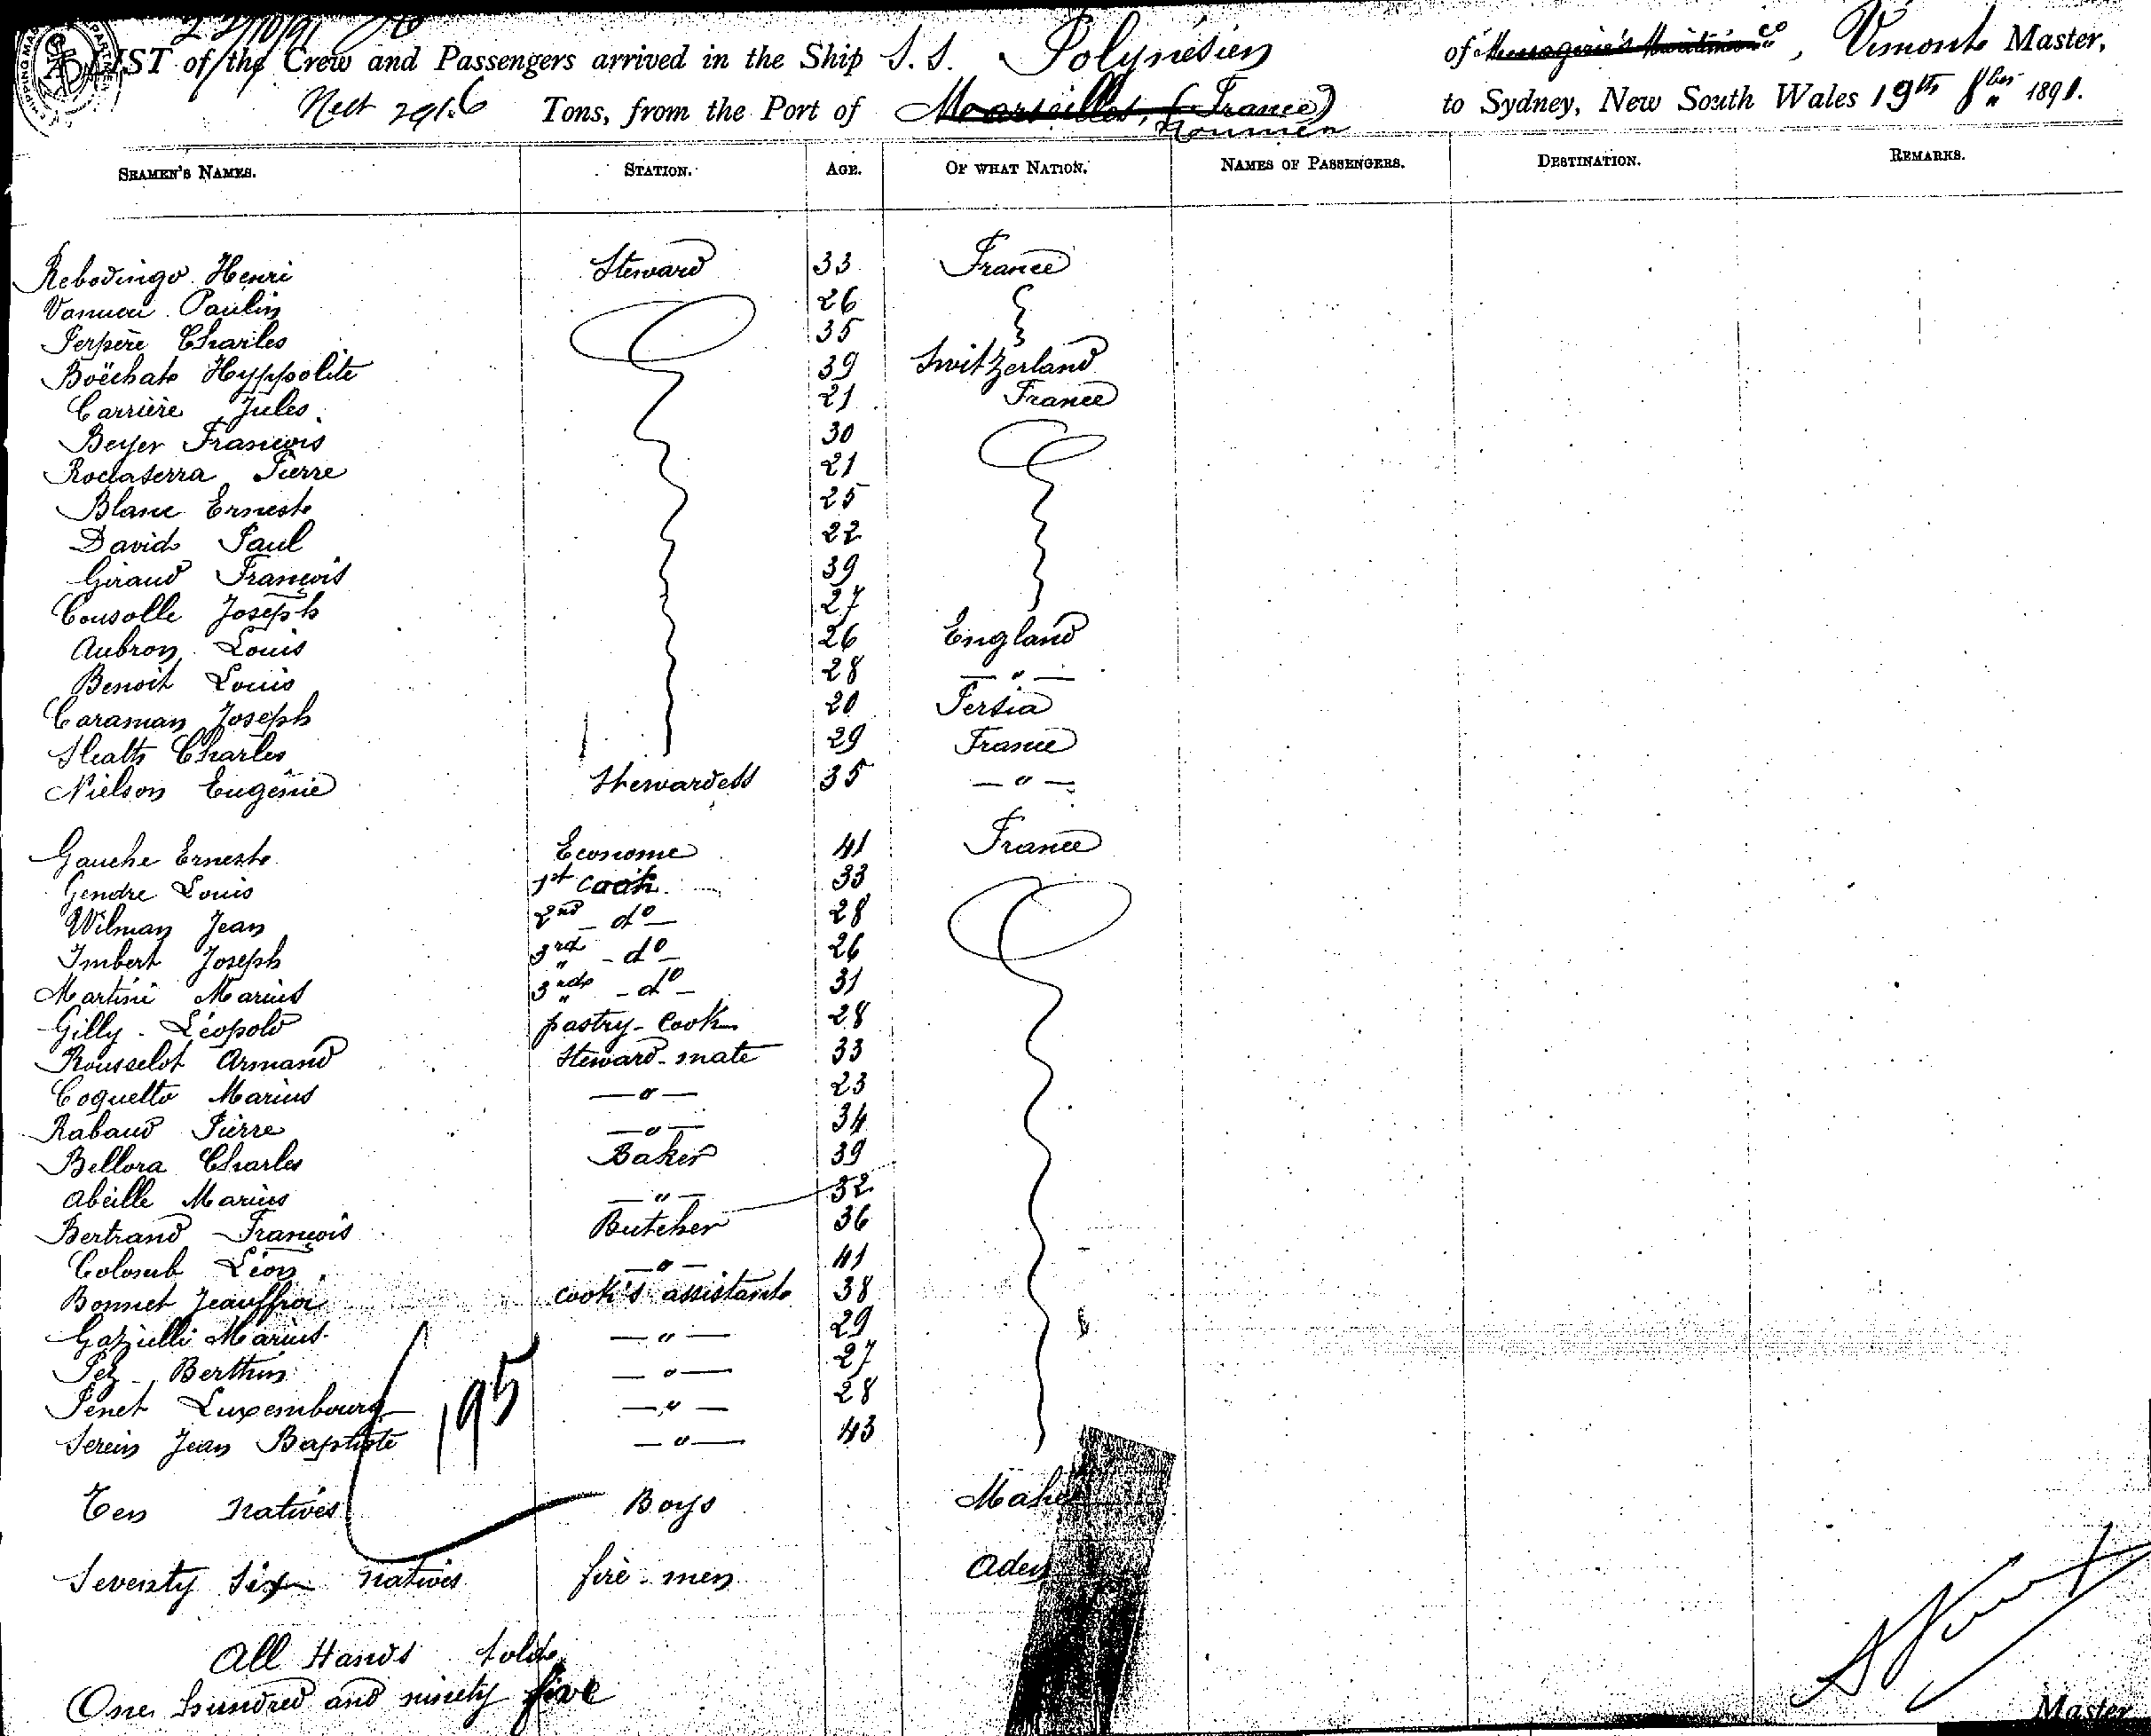 22/10/91
LIST of the Crew and Passengers arrived in the Ship S.S. Polynésien of Messageries Maritimes Co, Vimont Master,
Nett 2916 Tons, from the Port of Marseilles, (France) Noumea to Sydney, New South Wales 19th 8ber 1891.
SEAMEN'S NAMES. STATION. AGE. OF WHAT NATION. NAMES OF PASSENGERS. DESTINATION. REMARKS.
Rebodingo Henri Steward 33 France
Paulin 26
Perpère Charles 35
Boëchat Hyppolite 39 Switzerland
Carrière Jules 21 France
Beyer François 30
Rocaserra Pierre 21
Blanc Ernest 25
David Paul 22
Giraud François 39
Cousolle Joseph 27
Aubron Louis 26 England
Benoit Louis 28 — " —
Caraman Joseph 20 Persia
Heath Charles 29 France
Nielson Eugénie Stewardess 35 — " —
Gauche Ernest Econome 41 France
Gendre Louis 1st Cook 33
Wilman Jean 2nd — do — 28
Imbert Joseph 3rd — do — 26
Martini Marius 3rd — do — 31
Gilly Léopold pastry-Cook 28
Rousselot Armand Steward-mate 33
Coquetto Marius — " — 23
Rabaud Pierre — " — 34
Bellora Charles Baker 39
Abeille Marius — " — 32
Bertrand François Butcher 36
Colomb Léon — " — 41
Bonnet Jeauffroi cook's assistant 38
Gazielli Marius — " — 29
Pez Berthin — " — 27
Penet Luxembourg — " — 28
Serein Jean Baptiste — " — 43
195
Ten natives Boys Mahé
Seventy Six natives fire-men Aden
All Hands told
One hundred and ninety five
Master